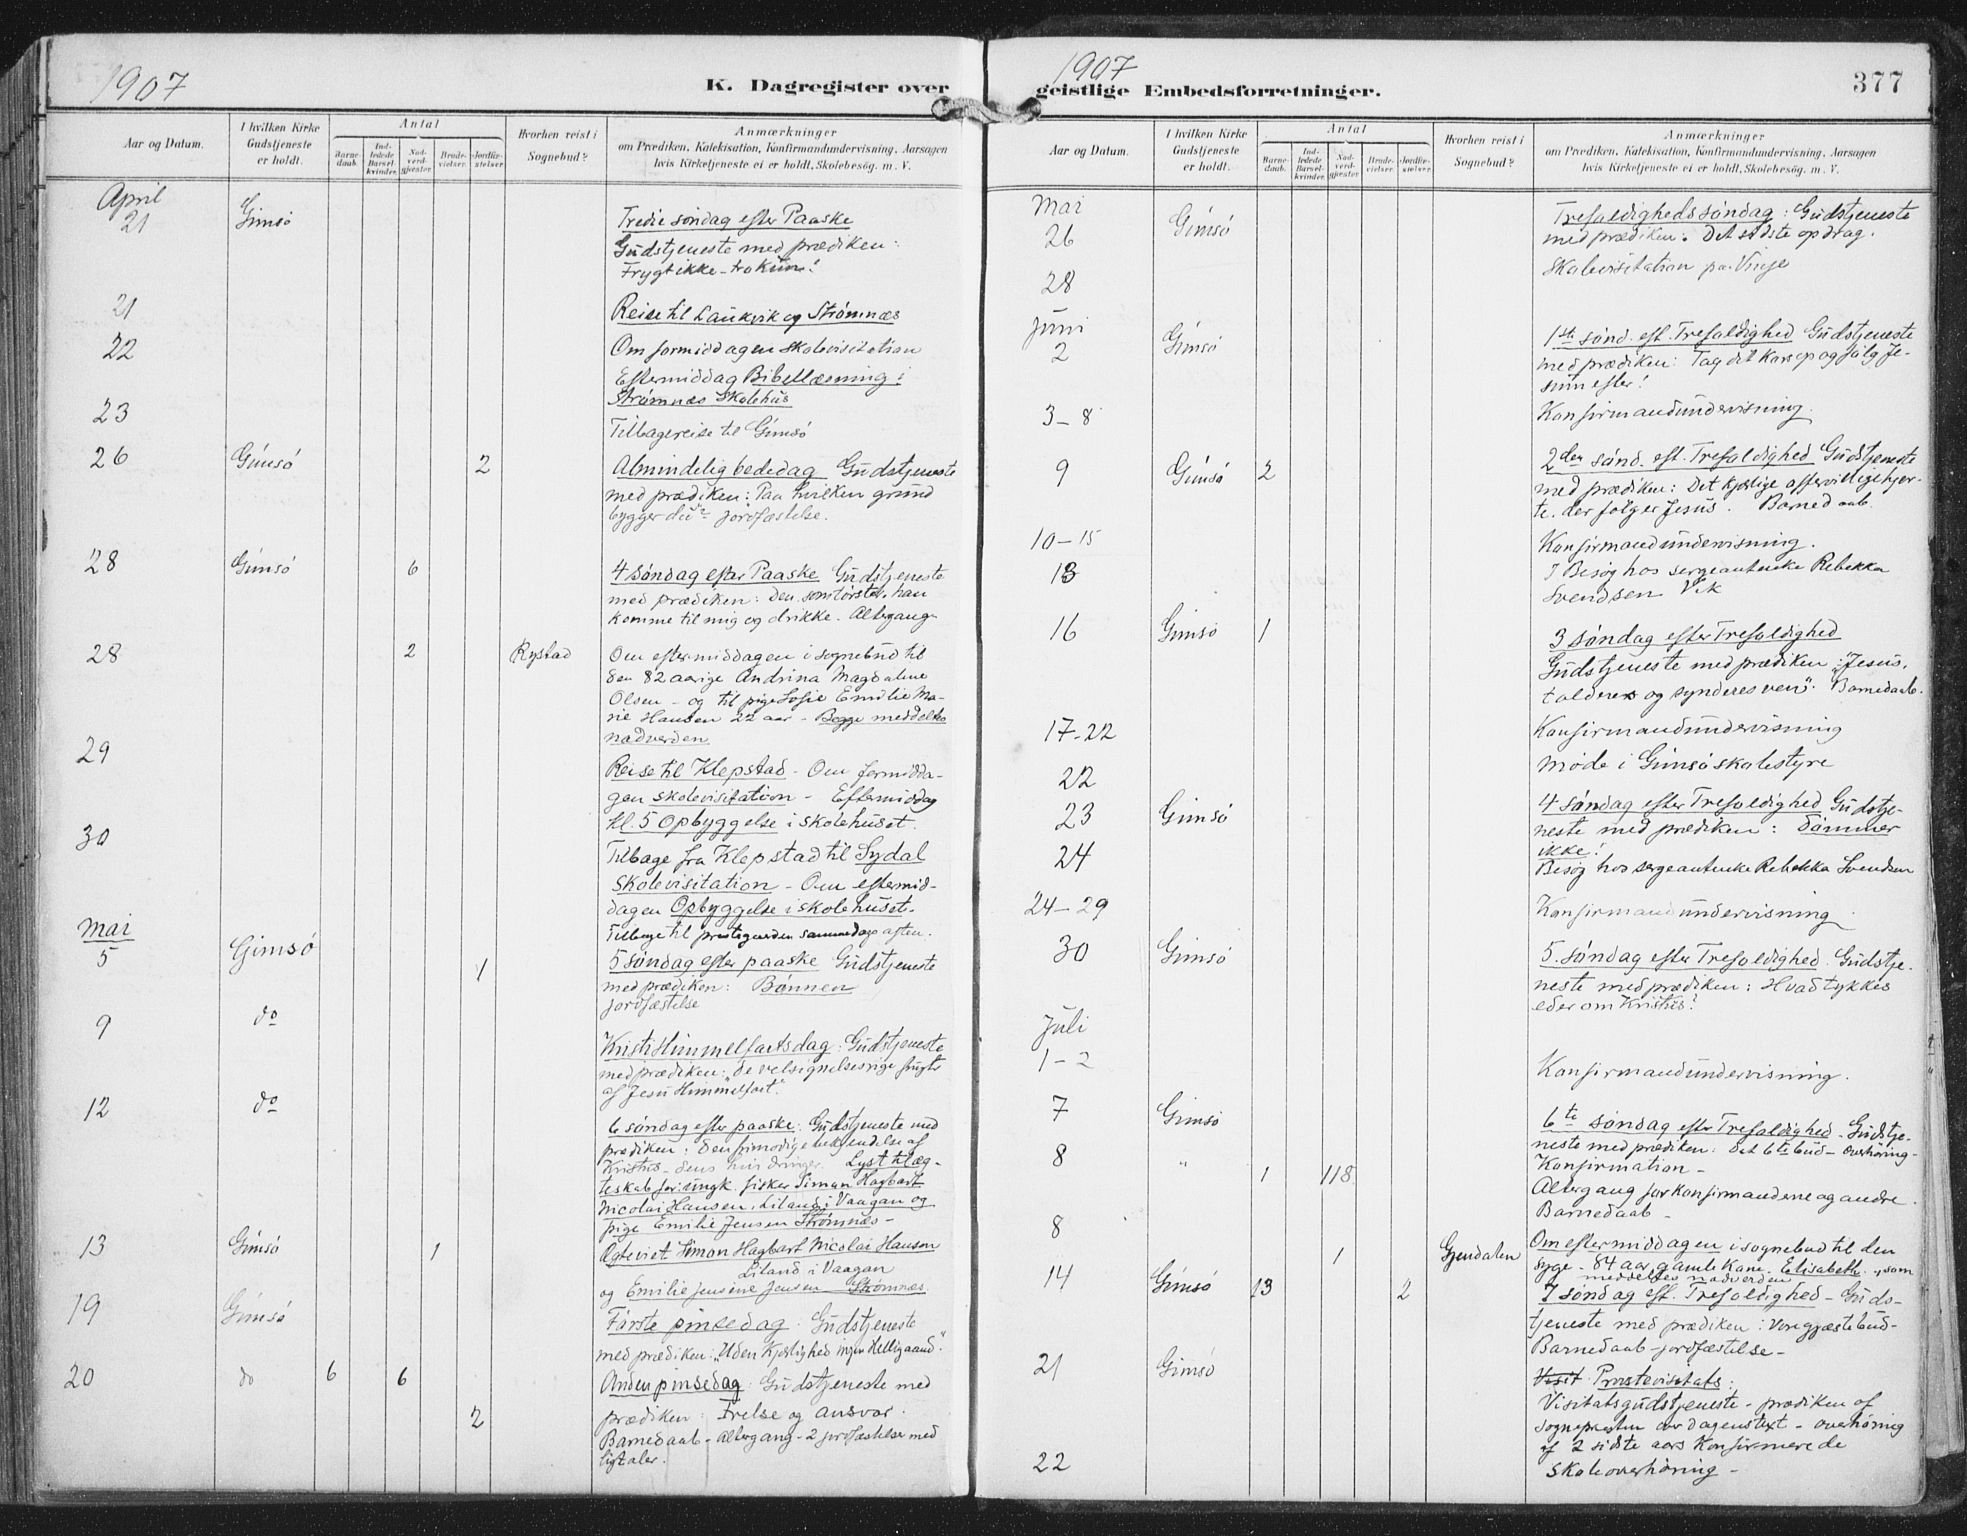 1907
K. Dagregister over
Aar og Datum.
I hvilken Kirke Gudstjeneste er holdt.
Antal
Barnedaab.
Indledede Barselkvinder.
Nadverdgjester
Brudevielser.
Jordfæstelser
Hvorhen reist i Sognebud?
Anmærkninger
om Prædiken, Katekisation, Konfirmandundervisning, Aarsagen
hvis Kirketjeneste ei er holdt, Skolebesøg. m. V.
April
21 Gimsö Tredie søndag efter Paaske
Gudstjeneste med prædiken:
Frygt ikke - tro kun!
21 Reise til Laukvik og Strømnæs
22 Om formiddagen skolevisitation
Eftermiddag Bibellæsning i
Strømnæs Skolehus
23 Tilbagereise til Gimsö
26 Gimsö 2 Almindelig bededag Gudstjeneste
med prædiken: Paa hvilken grund
bygger du? jordfæstelse.
28 Gimsö 6 4 søndag efter Paaske Gudstjeneste
med prædiken: Den som tørster, han
komme til mig og drikke. Altergang
28 2 Rystad Om eftermiddagen i sognebud til
den 82 aarige Andrina Magdalene
Olsen - og til pige Sofie Emilie Ma-
rie Hansen 22 aar - Begge meddeltes
nadverden
29 Reise til Klepstad - Om formidda-
gen skolevisitation - Eftermiddag
kl. 5 Opbyggelse i skolehuset.
30 Tilbage fra Klepstad til Sydal
Skolevisitation - Om eftermid-
dagen Opbyggelse i skolehuset.
Tilbage til prestegaarden sammedags aften.
Mai
5 Gimsö 1 5 søndag efter paaske Gudstjeneste
med prædiken: Bønnen
jordfæstelse
9 do Kristi Himmelfartsdag: Gudstjeneste
med prædiken: "De velsignelsesrige frugter
af Jesu Himmelfart".
12 do 6 søndag efter paaske: Gudstjeneste med
prædiken: Den frimodige bekjendelse af
Kristus - dens hindringer. Lyst til æg-
teskab for: ungk. fisker Simon Hagbart
Nicolai Hansen, Liland i Vaagan og
pige Emilie Jensen Strømnæs -
13 Gimsö 1 Ægteviet Simon Hagbart Nicolai Hansen
Liland i Vaagan
og Emilie Jensine Jensen Strømnæs.
19 Gimsö Første pinsedag. Gudstjeneste
med prædiken: "Uden Kjærlighed ingen Helligaand".
20 do 6 6 2 Anden pinsedag: Gudstjeneste med
prædiken: Frelse og ansvar.
Barnedaab - altergang - 2 jordfæstelse med
ligtaler.
1907
geistlige Embedsforretninger.
377
Aar og Datum.
I hvilken Kirke Gudstjeneste er holdt.
Antal
Barnedaab.
Indledede Barselkvinder.
Nadverdgjester
Brudevielser.
Jordfæstelser.
Hvorhen reist i Sognebud?
Anmærkninger
om Prædiken, Katekisation, Konfirmandundervisning, Aarsagen
hvis Kirketjeneste ei er holdt, Skolebesøg. m. V.
Mai
26 Gimsö Trefoldighedssøndag: Gudstjeneste
med prædiken: Det sidste opdrag.
28 Skolevisitation paa Vinje
Juni
2 Gimsö 1ste sønd. eft. Trefoldighed Gudstjeneste
med prædiken: Tag dit Kors op og følg Je-
sum efter!
3-8 Konfirmandundervisning.
9 Gimsö 2 2den sønd. eft. Trefoldighed Gudstjeneste
med prædiken: Det kjærlige offervillige hjer-
te, der følger Jesus. Barnedaab.
10-15 Konfirmandundervisning.
13 I Besøg hos sergeantenke Rebekka
Svendsen Vik
16 Gimsö 1 3 søndag efter Trefoldighed
Gudstjeneste med prædiken: "Jesus,
tolderes og synderes ven". Barnedaab.
17-22 Konfirmandundervisning
22 Møde i Gimsö skolestyre
23 Gimsö 4 søndag efter Trefoldighed Gudstje-
neste med prædiken: Dømmer
ikke!
24 Besøg hos sergeantenke Rebekka Svendsen
24-29 Konfirmandundervisning.
30 Gimsö 5. søndag efter Trefoldighed. Gudstje-
neste med prædiken: Hvad tykkes
eder om Kristus?
Juli
1-2 Konfirmandundervisning.
7 Gimsö 6te søndag efter Trefoldighed. Gudstje-
neste med prædiken: Det 6te bud - overhøring -
8 " 1 118 Konfirmation -
Altergang for konfirmanderne og andre.
Barnedaab -
8 1 Gjendalen Om eftermiddagen i sognebud til den
syge - 84 aar gamle kone Elisabeth - som
meddeltes nadverden
14 Gimsö 13 2 7 søndag eft. Trefoldighed - Guds-
tjeneste med prædiken: Vore gjæstebud -
Barnedaab - jordfæstelse -
21 Gimsö Visit Provstevisitats:
Visitatsgudstjeneste - prædiken af
sognepresten over dagens text - overhøring
af 2 sidste aars Konfirmerede
22 Skoleoverhøring -